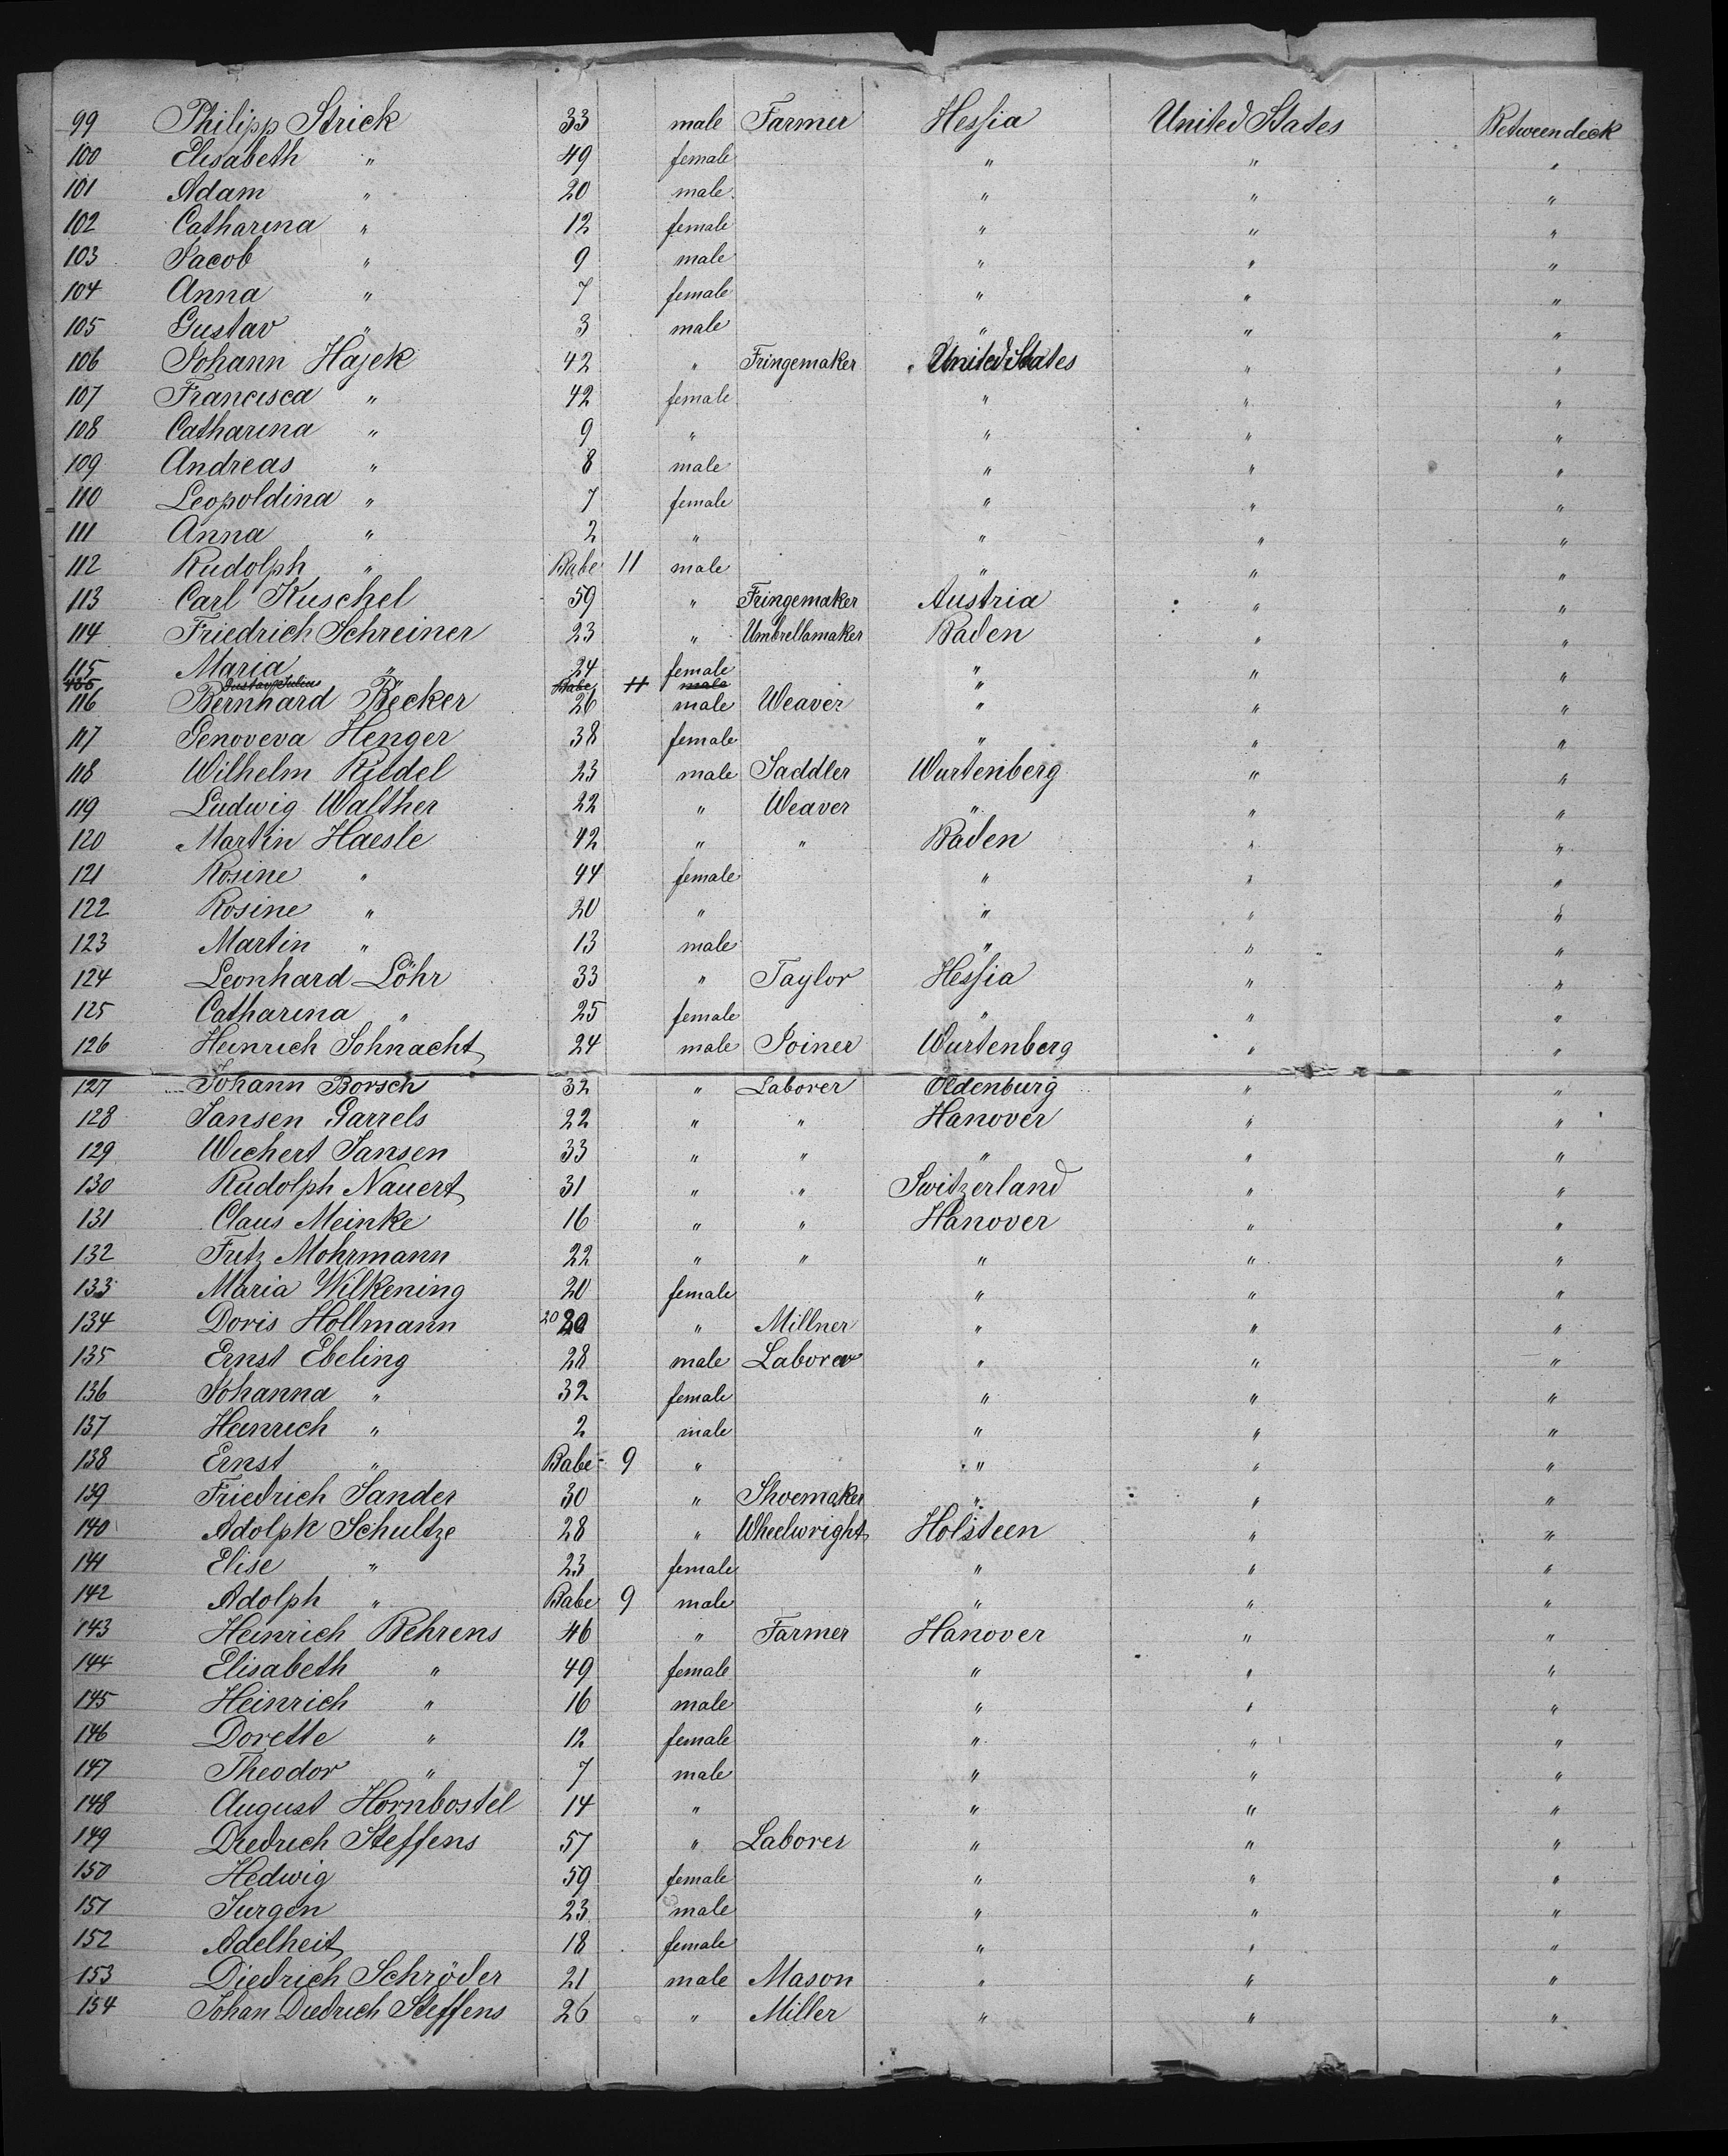 99 Philipp Strick 33 male Farmer Hessia United States Betweendeck
100 Elisabeth " 49 female " " "
101 Adam " 20 male " " "
102 Catharina " 12 female " " "
103 Jacob " 9 male " " "
104 Anna " 7 female " " "
105 Gustav " 3 male " " "
106 Johann Hajek 42 " Fringemaker United States " "
107 Francisca " 42 female " " "
108 Catharina " 9 " " " "
109 Andreas " 8 male " " "
110 Leopoldina " 7 female " " "
111 Anna " 2 " " " "
112 Rudolph " Babe 11 male " " "
113 Carl Kuschel 59 " Fringemaker Austria " "
114 Friedrich Schreiner 23 " Umbrellamaker Baden " "
115 Maria " 24 female " " "
Gustav Julius Babe 11 male "
116 Bernhard Becker 26 male Weaver " " "
117 Genoveva Henger 38 female " " "
118 Wilhelm Riedel 23 male Saddler Wurtenberg " "
119 Ludwig Walther 22 " Weaver " " "
120 Martin Haesle 42 " " Baden " "
121 Rosine " 44 female " " "
122 Rosine " 20 " " " "
123 Martin " 13 male " " "
124 Leonhard Löhr 33 " Taylor Hessia " "
125 Catharina " 25 female " " "
126 Heinrich Sohnacht 24 male Joiner Wurtenberg " "
127 Johann Borsch 32 " Laborer Oldenburg " "
128 Jansen Garrels 22 " " Hanover " "
129 Wichert Jansen 33 " " " " "
130 Rudolph Nauert 31 " " Switzerland " "
131 Claus Meinke 16 " " Hanover " "
132 Fritz Mohrmann 22 " " " " "
133 Maria Wilkening 20 female " " "
134 Doris Hollmann 20 20 " Millner " " "
135 Ernst Ebeling 28 male Laborer " " "
136 Johanna " 32 female " " "
137 Heinrich " 2 male " " "
138 Ernst " Babe 9 " " " "
139 Friedrich Sander 30 " Shoemaker " " "
140 Adolph Schultze 28 " Wheelwright Holsteen " "
141 Elise " 23 female " " "
142 Adolph " Babe 9 male " " "
143 Heinrich Behrens 46 " Farmer Hanover " "
144 Elisabeth " 49 female " " "
145 Heinrich " 16 male " " "
146 Dorette " 12 female " " "
147 Theodor " 7 male " " "
148 August Hornbostel 14 " " " "
149 Diedrich Steffens 57 " Laborer " " "
150 Hedwig 59 female " " "
151 Jurgen 23 male " " "
152 Adelheit 18 female " " "
153 Diedrich Schröder 21 male Mason " " "
154 Johan Diedrich Steffens 26 " Miller " " "